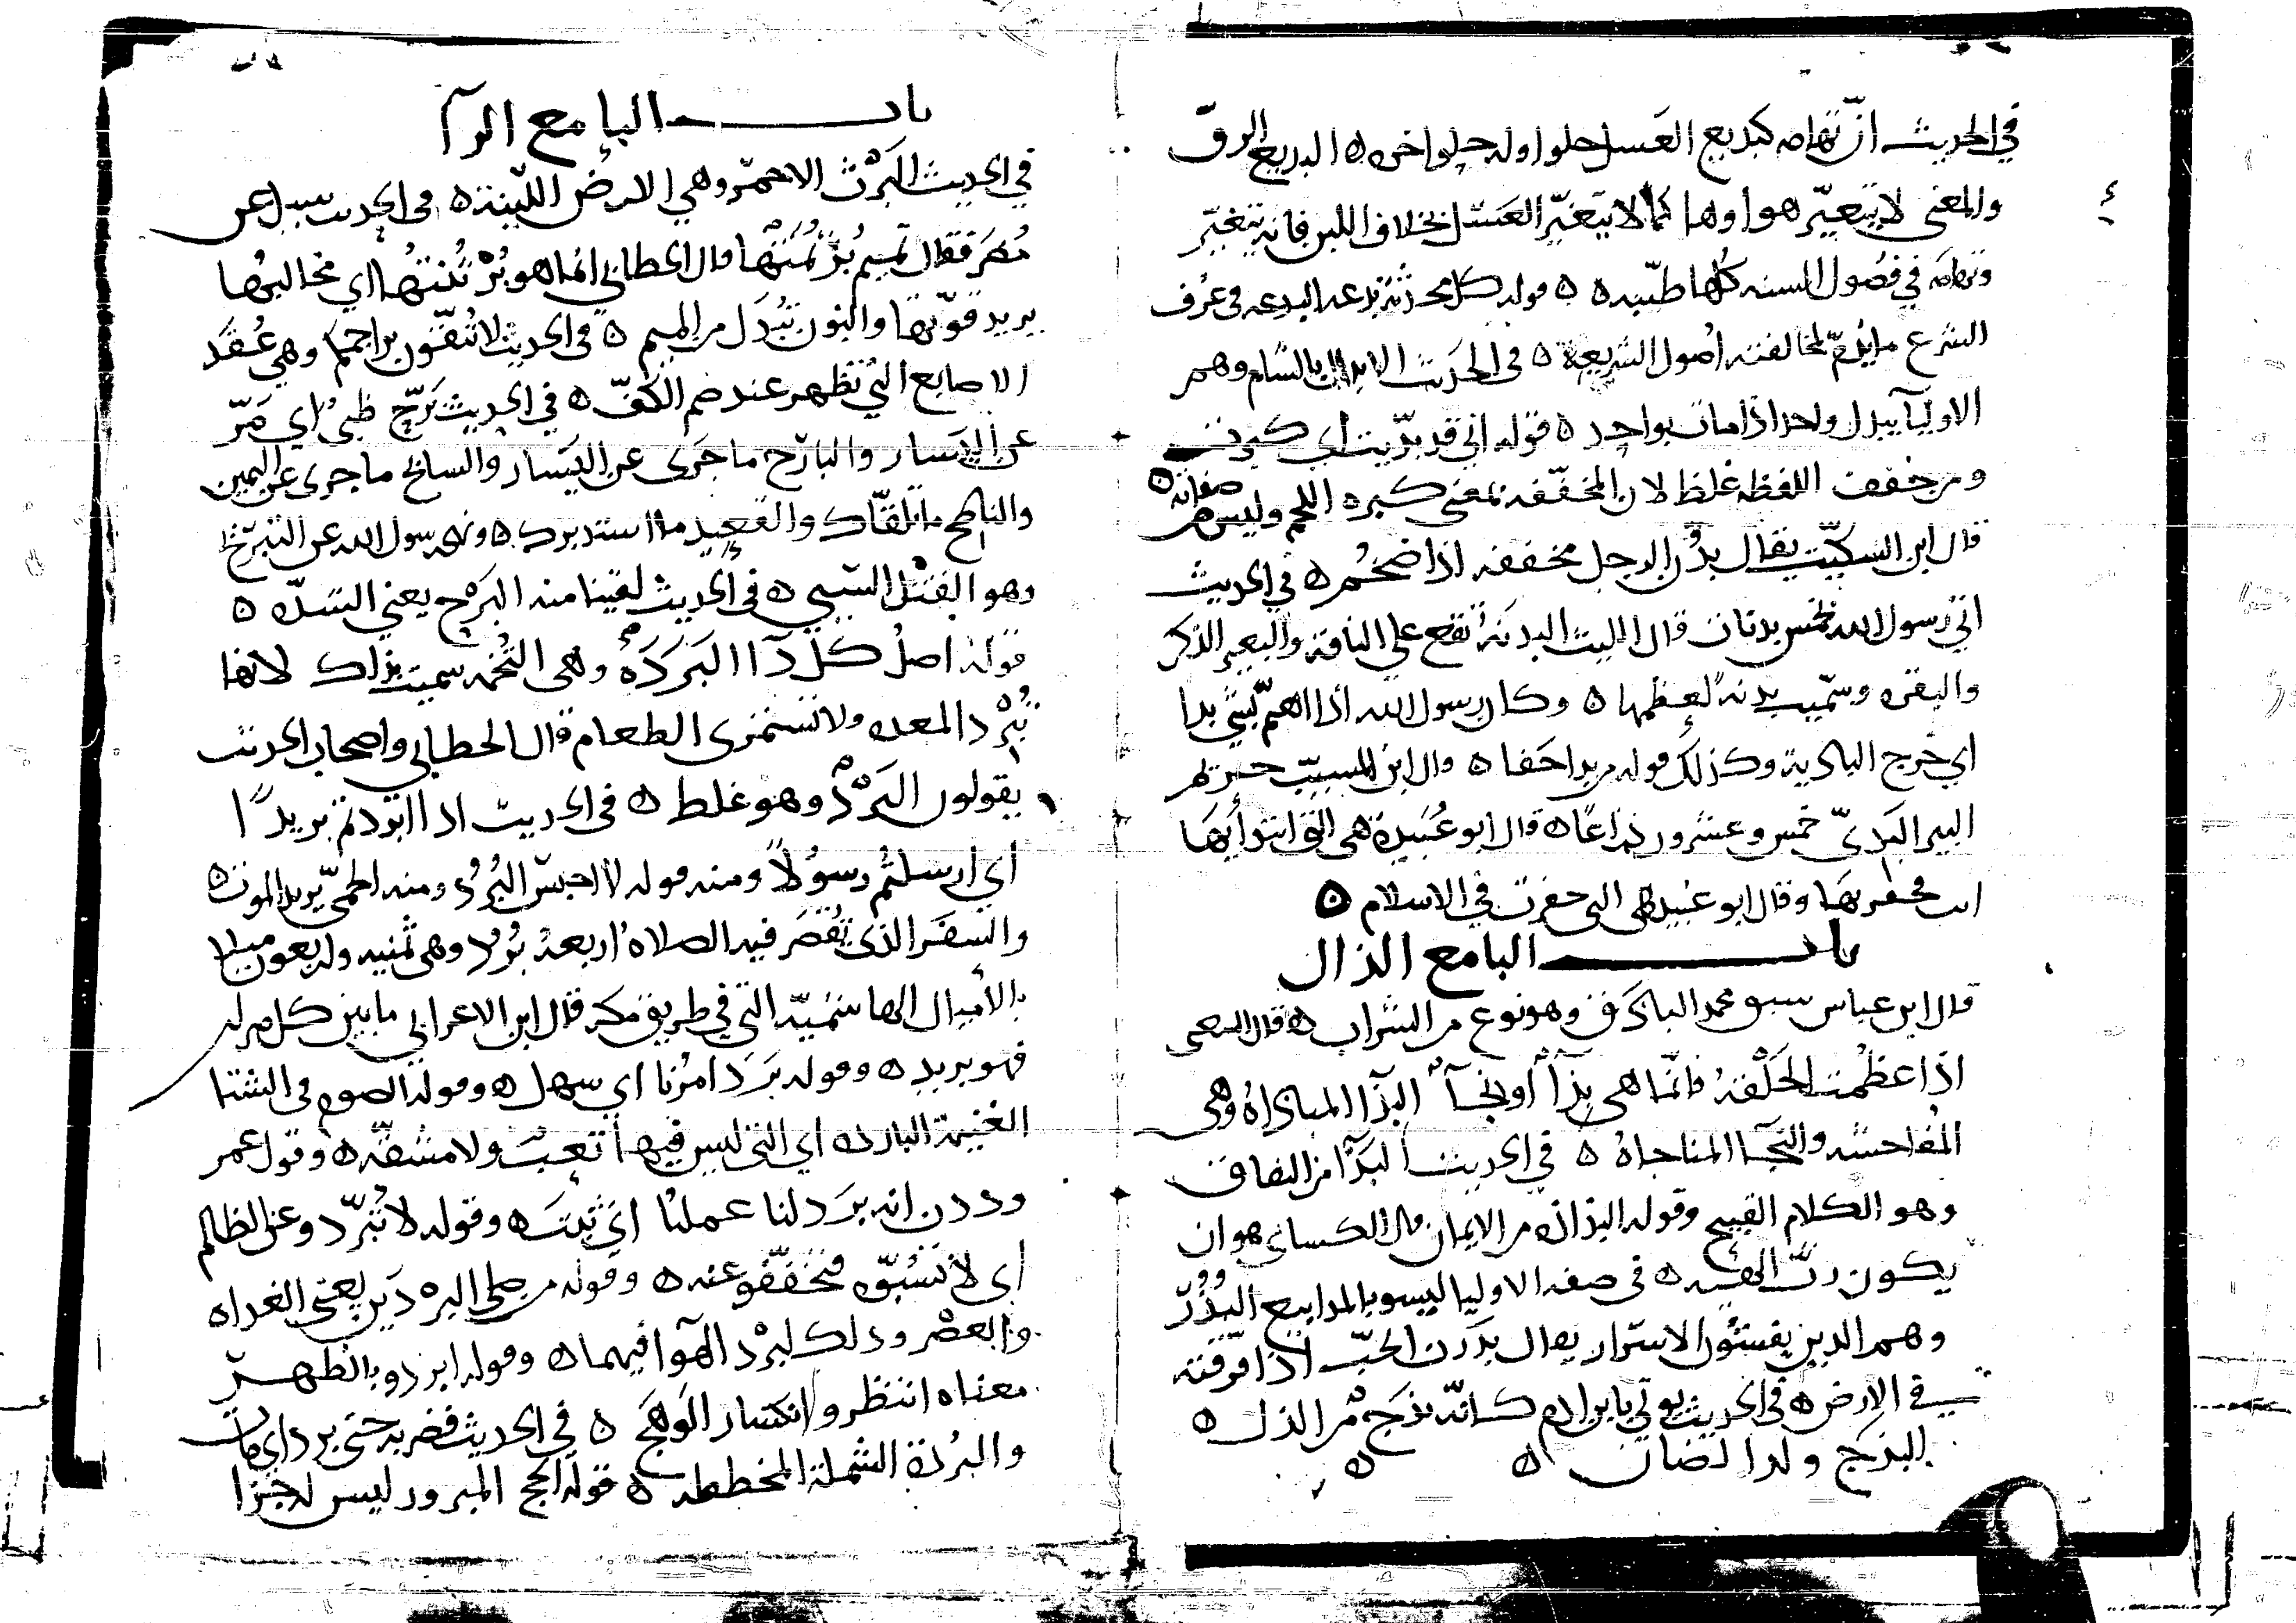 في الحديث ان تهامه كبديع العسل حلو اوله حلو اخره ه البديع الزق
والمعنى لا يتغير هواوها كما لا يتغير العسل بخلاف اللبن فانه يتغير
وتهامه في فصول السنه كلها طيبه ه قوله كل محدثة بدعه البدعه في عرف
الشرع ما يذم لمخالفته اصول الشريعة ه في الحديث الابدال بالشام وهم
الاوليآ يبدل واحدا اذا مات بواحد ه قوله اني قد بدنت اي كبرت
ومن خفف اللفظه غلط لان المخففه بمعنى كثره اللحم وليس من صفاته ه
قال ابن السكيت يقال بدن الرجل مخففه اذا ضخم ه في الحديث
اتي رسول الله بخمس بدنات قال الليث البدنة تقع على الناقة والبعير الذكر
والبقره وسميت بدنة لعظمها ه وكان رسول الله اذا اهتم لشي بدا
اي خرج الى البادية وكذلك قوله من بدا جفا ه وقال ابن المسيب حريم
البير البدي خمس وعشرون ذراعا ه قال ابو عبيدة هي التي ابتدأتها
انت فحفرتها وقال ابو عبيد هي التي حفرت في الاسلام ه
باب البا مع الذال
قال ابن عباس سبق محمد الباذق وهو نوع من الشراب ه قال الشعبي
اذا عظمت الحلقة فانما هي بذآ او نجآ البذآ المباذاة وهي
المفاحشه والنجآ المناجاة ه في الحديث البذآ من النفاق
وهو الكلام القبيح وقوله البذاذه من الايمان قال الكساي هو ان
يكون رث الهيئه ه في صفه الاوليا ليسو بالمذاييع البذر
وهم الذين يفشون الاسرار يقال بذرت الحب اذا فرقته
في الارض ه في الحديث يوتي بابن ادم كانه بذج من الذل ه
البذج ولد الضان ه ه
باب البا مع الرآ
في الحديث البرث الاحمر وهي الارض اللينة ه في الحديث سيل عن
مضر فقال تميم برثمتها قال الخطابي انما هو برثنتها اي مخالبها
يريد قوتها والنون تبدل من الميم ه في الحديث لا تنقون براجمكم وهي عقد
الاصابع التي تظهر عند ضم الكف ه في الحديث برح ظبي اي مر
عن اليسار والبارح ما جرى عن اليسار والسانح ما جرى عن اليمين
والناطح ما تلقاك والقعيد ما استدبرك ه ونهى رسول الله عن التبريح
وهو القتل السيي ه في الحديث لقينا منه البرح يعني الشده ه
قوله اصل كل دآ البردة وهي التخمه سميت بذلك لانها
تبرد المعده ولا تستمرى الطعام قال الخطابي واصحاب الحديث
يقولون البرد وهو غلط ه في الحديث اذا ابردتم بريدا
اي ارسلتم رسولا ومنه قوله لا احبس البرد ومنه الحمى بريد الموت ه
والسفر الذي تقصر فيه الصلاة اربعة برد وهي ثمنيه واربعون ميلا
بالأميال الهاشمية التي في طريق مكه قال ابن الاعرابي ما بين كل منزلة
فهو بريد ه وقوله برد امرنا اي سهل ه وقوله الصوم في الشتا
الغنيمة البارده اي التي ليس فيها تعب ولا مشقه ه وقول عمر
وددت انه برد لنا عملنا اي ثبت ه وقوله لا تبردو عن الظالم
اي لا تسبوه فتخففو عنه ه وقوله من صلى البردين يعني الغداه
والعصر وذلك لبرد الهوآ فيهما ه وقوله ابردو بالظهر
معناه انتظرو انكسار الوهج ه في الحديث فضربه حتى برد اي مات
والبردة الشملة المخططه ه قوله الحج المبرور ليس له جزا